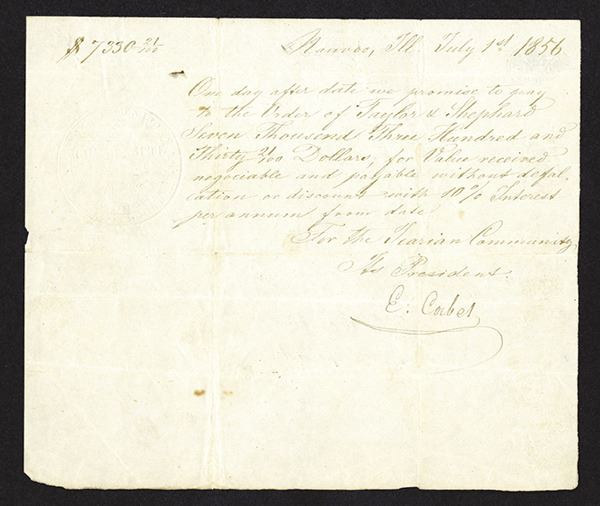 $ 7330 21/100 Nauvoo, Ill. July 1st 1856
One day after date we promise to pay
to the Order of Taylor & Shephard
Seven Thousand Three Hundred and
Thirty 21/100 Dollars, for Value received
negociable and payable without defal-
cation or discount with 10% Interest
per annum from date
For the Icarian Community
Its President.
E. Cabet